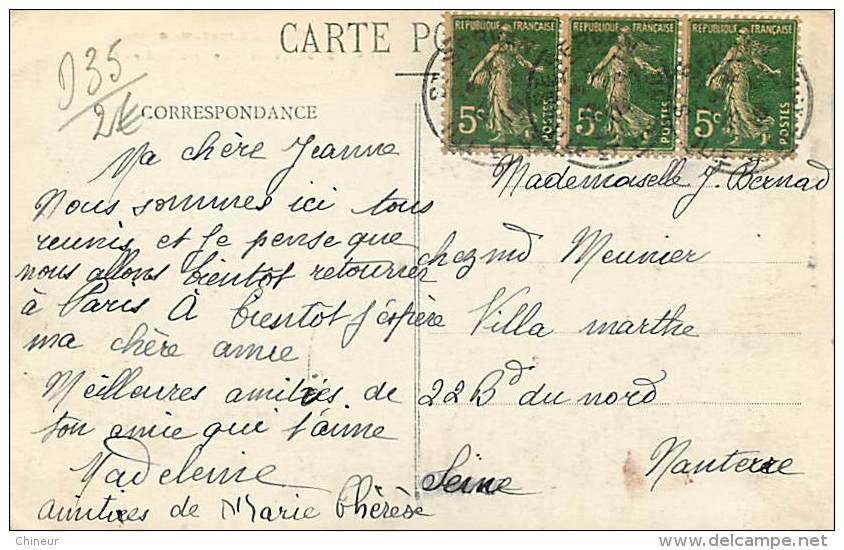 CARTE PO
REPUBLIQUE FRANÇAISE
REPUBLIQUE FRANÇAISE
REPUBLIQUE FRANÇAISE
5c POSTES
5c POSTES
5c POSTES
D35
2€
CORRESPONDANCE
Ma chère Jeanne
Nous sommes ici tous
reunis et Je pense que
nous allons bientot retourner
à Paris A bientot J'espère
ma chère amie
Meilleures amitiés de
ton amie qui t'aime
Madeleine
amitiés de Marie Thérèse
Mademoiselle J. Bernad
chez md Meunier
Villa marthe
22 Bd du nord
Nanterre
Seine
Chineur
www.delcampe.net